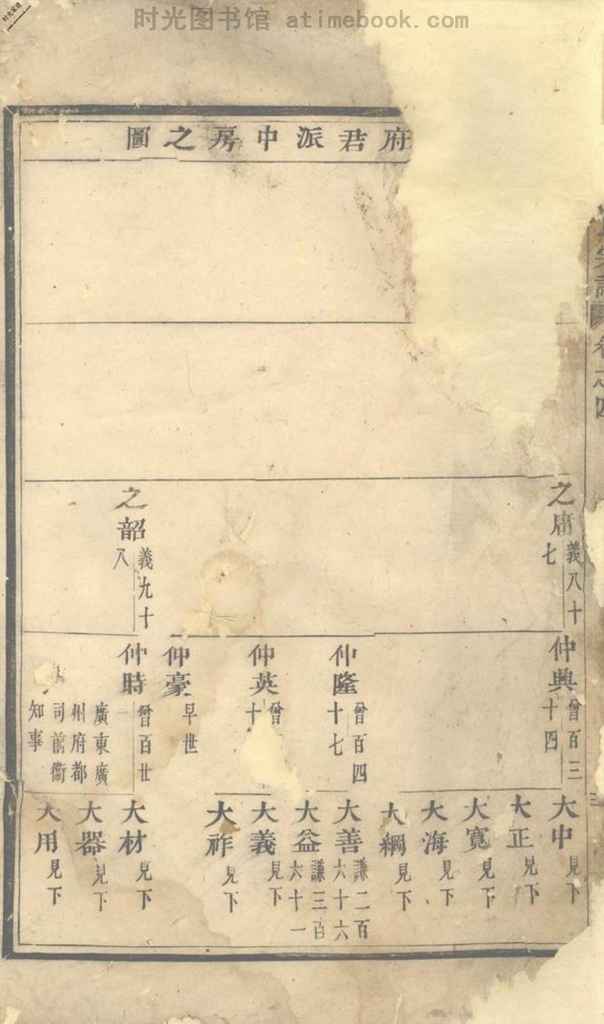 时光图书馆 atimebook.com
府君派中房之圖
卷之四
之庸 義八十七
之韶 義九十八
仲興 曾百三十四
仲隆 曾百四十七
仲英 曾
仲豪 早世
仲時 曾百廿一
廣東廣州府都司前衛知事
大中 見下
大正 見下
大寬 見下
大海 見下
大綱 見下
大善 謙二百六十六
大益 謙三百六十一
大義 見下
大祚 見下
大材 見下
大器 見下
大用 見下